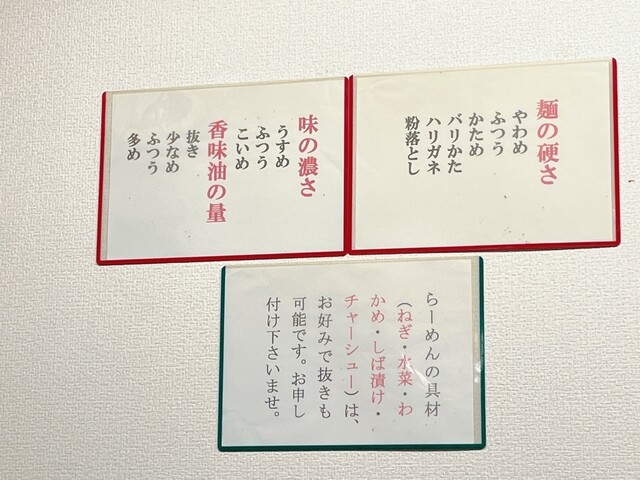 麺の硬さ
やわめ
ふつう
かため
バリかた
ハリガネ
粉落とし
味の濃さ
うすめ
ふつう
こいめ
香味油の量
抜き
少なめ
ふつう
多め
らーめんの具材
（ねぎ・水菜・わ
かめ・しば漬け・
チャーシュー）は、
お好みで抜きも
可能です。お申し
付け下さいませ。